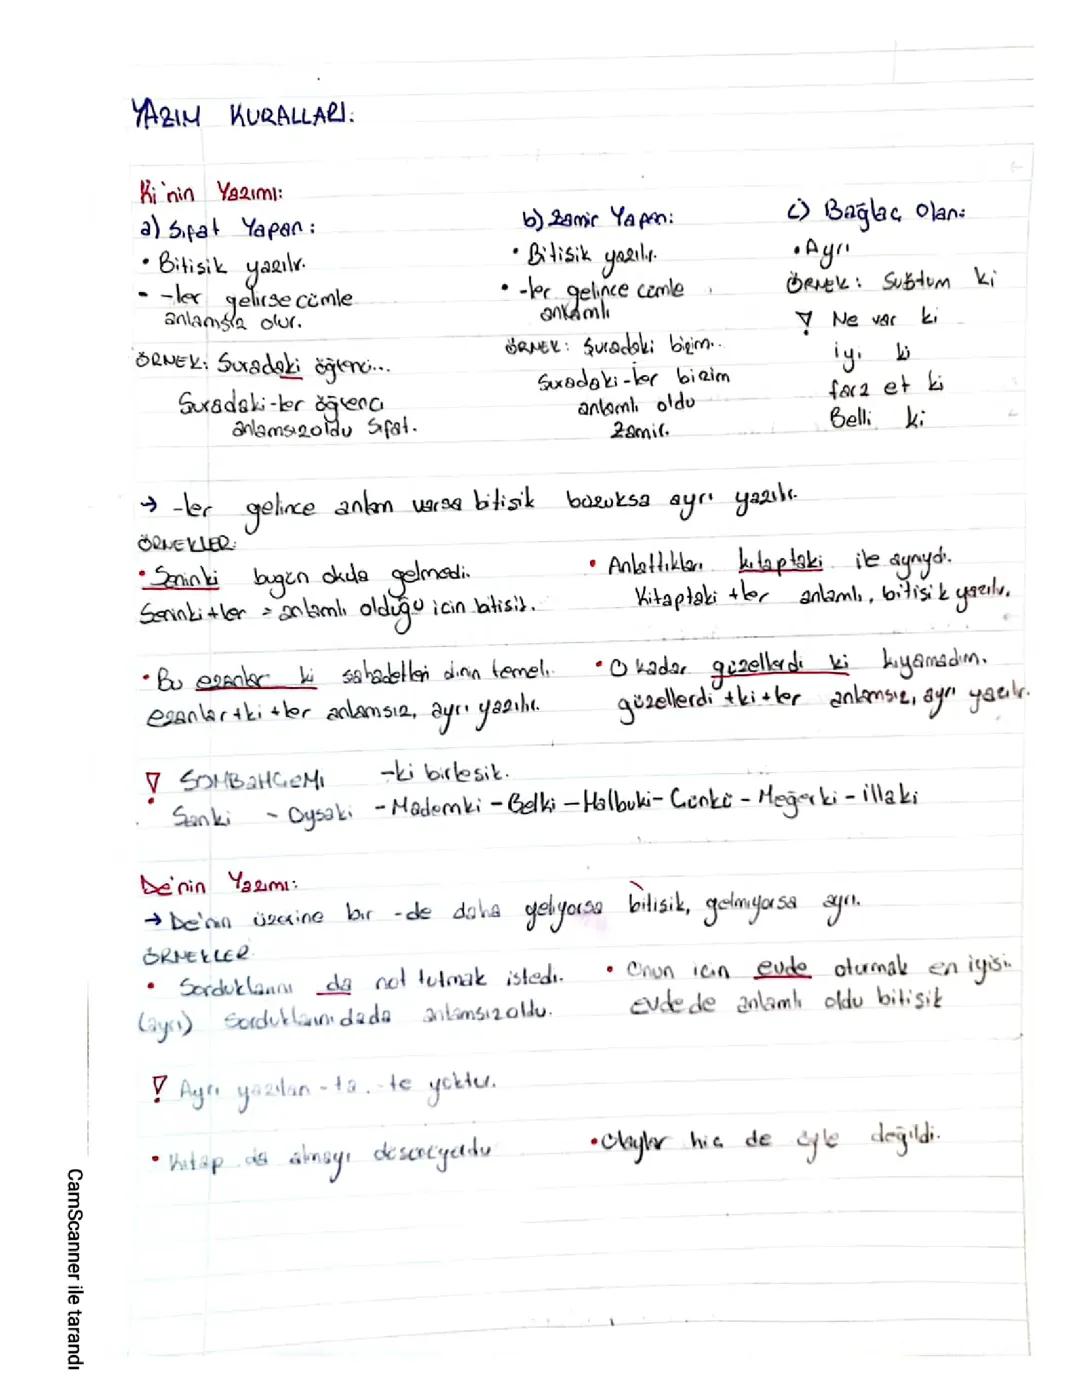 YAZIM KURALLARI:
Ki'nin Yazımı:
a) Sıfat Yapan:
• Bitişik yazılır.
• -ler gelirse cümle
anlamsız olur.
ÖRNEK: Sıradaki öğrenci...
Sıradaki-ler öğrenci
anlamsız oldu Sıfat.
b) Zamir Yapan:
• Bitişik yazılır.
• -ler gelince cümle
anlamlı
ÖRNEK: Sıradaki bizim..
Sıradaki-ler bizim
anlamlı oldu
Zamir.
c) Bağlaç Olan:
• Ayrı
ÖRNEK: Sustum ki
! Ne var ki
iyi ki
farz et ki
Belli ki
→ -ler gelince anlam varsa bitişik bozuksa ayrı yazılır.
ÖRNEKLER:
• Seninki bugün okula gelmedi.
Seninki+ler = anlamlı olduğu için bitişik.
• Anlattıkları kitaptaki ile aynıydı.
Kitaptaki +ler anlamlı, bitişik yazılır.
• Bu ezanlar ki şahadetleri dinin temeli.
ezanlar+ki+ler anlamsız, ayrı yazılır.
• O kadar güzellerdi ki kıyamadım.
güzellerdi +ki+ler anlamsız, ayrı yazılır.
! SOMBaHÇeMi -ki birleşik.
Sanki - Oysaki - Mademki - Belki - Halbuki - Çünkü - Meğerki - illaki
De'nin Yazımı:
→ De'nin üzerine bir -de daha geliyorsa bitişik, gelmiyorsa ayrı.
ÖRNEKLER
• Sorduklarını da not tutmak istedi.
(ayrı) Sorduklarını dada anlamsız oldu.
• Onun için evde oturmak en iyisi..
evdede anlamlı oldu bitişik
! Ayrı yazılan -ta, -te yoktur.
• Kitap da almayı
• Olaylar hiç de öyle değildi.
CamScanner ile tarandı